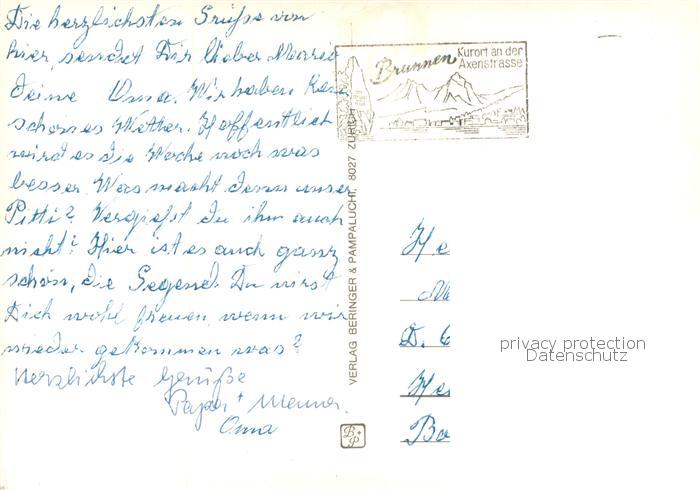 Die herzlichsten Grüße von
hier, sendet Dir lieber Mario
deine Oma. Wir haben kein
schönes Wetter. Hoffentlich
wird es die Woche noch was
besser. Was macht denn unser
Pitti? Vergießt du ihm auch
nicht? Hier ist es auch ganz
schön, die Gegend. Du wirst
Dich wohl freuen, wenn wir
wieder gekommen was?
Herzlichste Grüße
Papa +
Oma
Brunnen
Kurort an der
Axenstrasse
VERLAG BERINGER & PAMPALUCHI, 8027 ZÜRICH
B+P
He
D. 6
He
Ba
privacy protection
Datenschutz